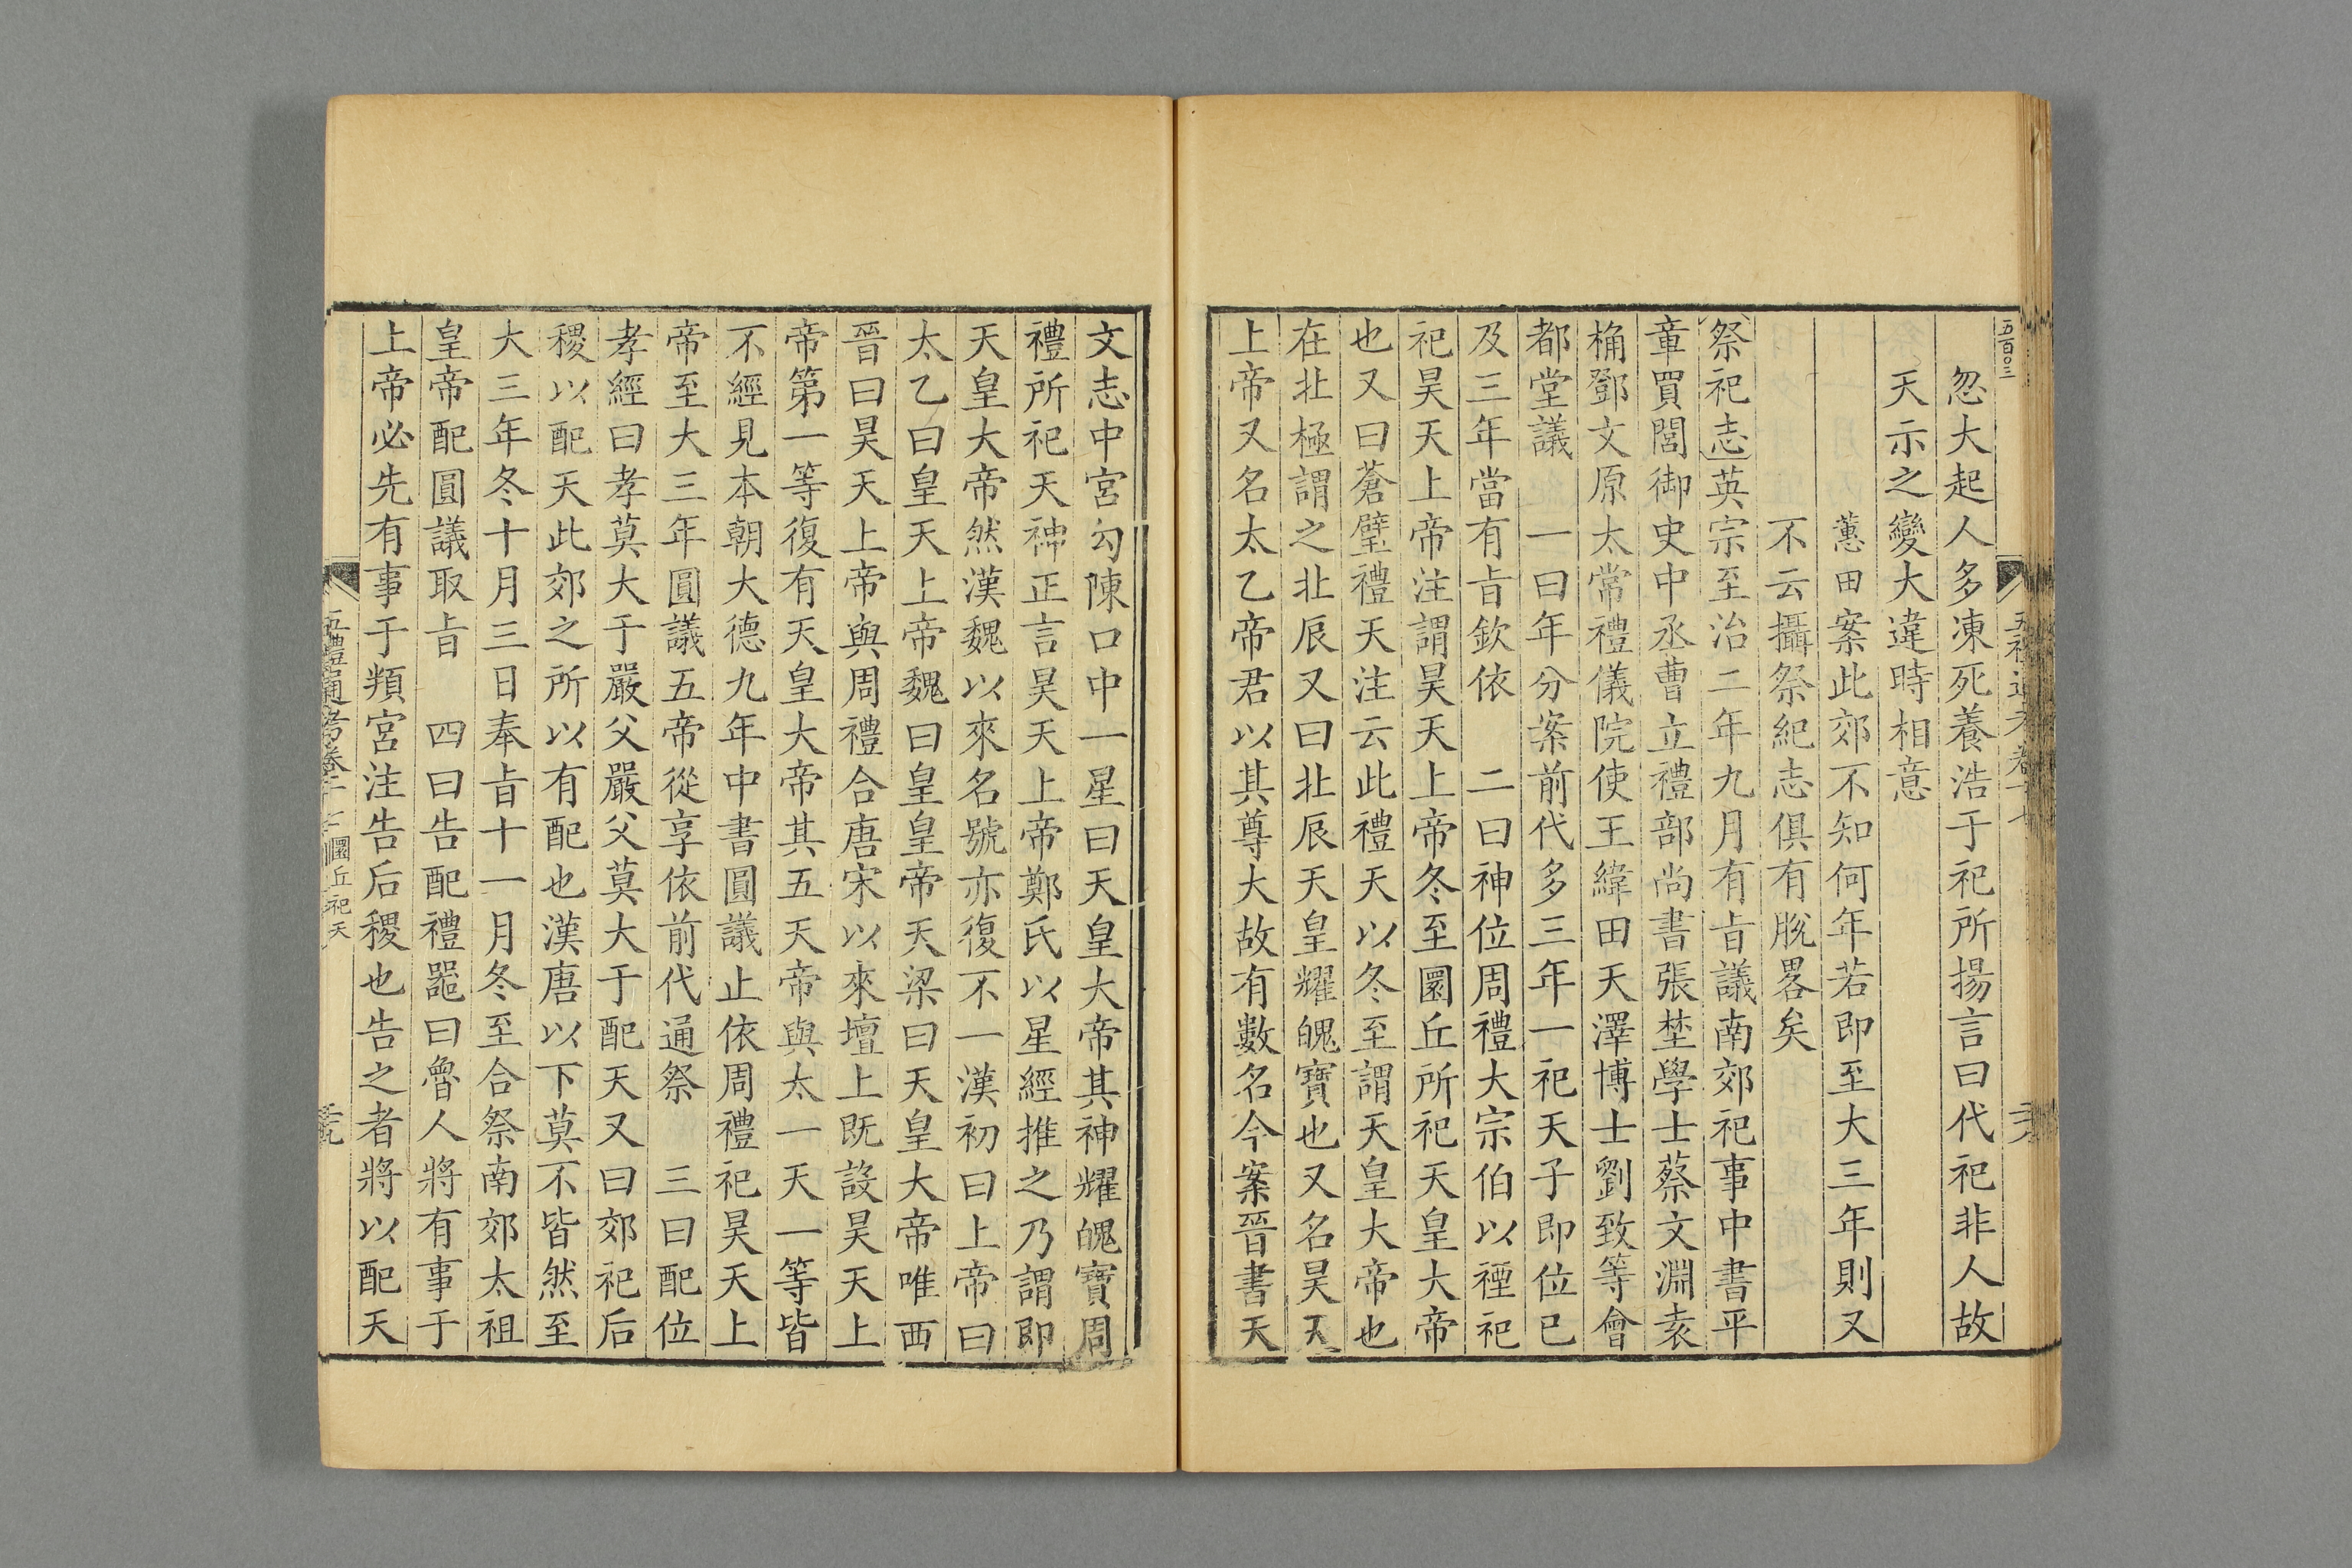 五百〇三
忽大起人多凍死養浩于祀所揚言曰代祀非人故
天示之變大違時相意
蕙田案此郊不知何年若即至大三年則又
不云攝祭紀志俱有脫畧矣
祭祀志英宗至治二年九月有㫖議南郊祀事中書平
章買閭御史中丞曹立禮部尚書張埜學士蔡文淵袁
桷鄧文原太常禮儀院使王緯田天澤博士劉致等會
都堂議　一曰年分案前代多三年一祀天子即位已
及三年當有㫖欽依　二曰神位周禮大宗伯以禋祀
祀昊天上帝注謂昊天上帝冬至圜丘所祀天皇大帝
也又曰蒼璧禮天注云此禮天以冬至謂天皇大帝也
在北極謂之北辰又曰北辰天皇耀魄寶也又名昊天
上帝又名太乙帝君以其尊大故有數名今案晉書天
文志中宮勾陳口中一星曰天皇大帝其神耀魄寶周
禮所祀天神正言昊天上帝鄭氏以星經推之乃謂即
天皇大帝然漢魏以來名號亦復不一漢初曰上帝曰
太乙曰皇天上帝魏曰皇皇帝天梁曰天皇大帝唯西
晉曰昊天上帝與周禮合唐宋以來壇上既設昊天上
帝第一等復有天皇大帝其五天帝與太一天一等皆
不經見本朝大德九年中書圓議止依周禮祀昊天上
帝至大三年圓議五帝從享依前代通祭　三曰配位
孝經曰孝莫大于嚴父嚴父莫大于配天又曰郊祀后
稷以配天此郊之所以有配也漢唐以下莫不皆然至
大三年冬十月三日奉㫖十一月冬至合祭南郊太祖
皇帝配圓議取㫖　四曰告配禮器曰魯人將有事于
上帝必先有事于頖宮注告后稷也告之者將以配天
圜丘祀天